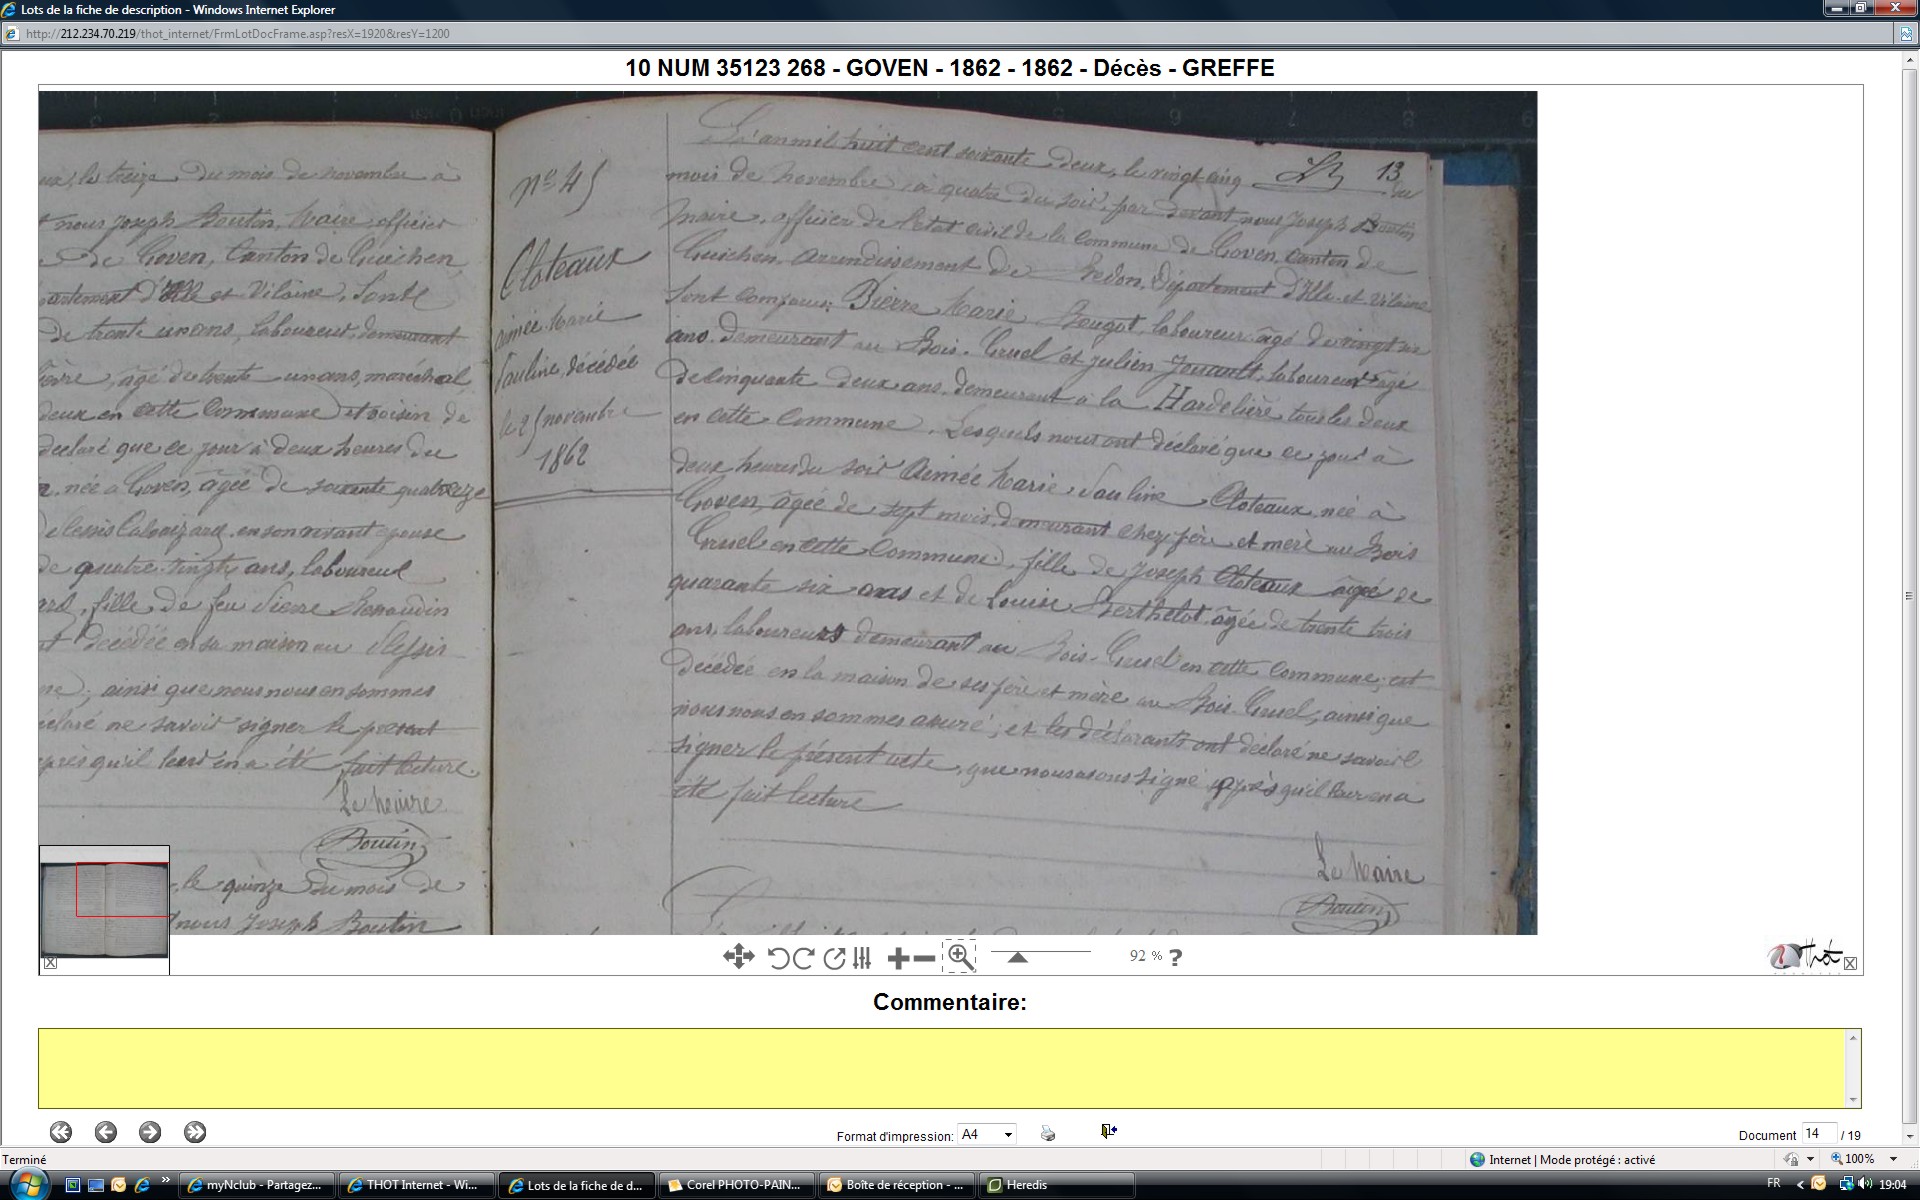 Lots de la fiche de description - Windows Internet Explorer
http://212.234.70.219/thot_internet/FrmLotDocFrame.asp?resX=1920&resY=1200
10 NUM 35123 268 - GOVEN - 1862 - 1862 - Décès - GREFFE
le treize du mois de novembre à
nous joseph Boutin, Maire, officier
de Goven, Canton de Guichen,
département d'Ille et Vilaine, Sont
de trente un ans, laboureur, demeurant
âgé de trente un ans, maréchal
deux en cette Commune et voisin de
déclaré que ce jour à deux heures du
née à Goven, âgée de soixante quatorze
en son vivant epouse
de quatre-vingts ans, laboureur
fille de feu Pierre Renaudin
décédée en sa maison au Plessix
ainsi que nous nous en sommes
déclaré ne savoir signer le présent
après qu'il leur en a été fait lecture.
Le Maire
Boutin
le quinze du mois de
nous Joseph Boutin
n° 45
Cloteaux
aimée Marie
Pauline, décédée
le 25 novembre
1862
13
L'an mil huit cent soixante deux, le vingt cinq du
mois de Novembre à quatre du soir, par devant nous Joseph Boutin
Maire, officier de l'Etat civil de la Commune de Goven, Canton de
Guichen, arrondissement de Redon, Département d'Ille et Vilaine
Sont comparus Pierre Marie Bougot, laboureur âgé de vingt six
ans, demeurant au Bois-Gruel et julien Jouault, laboureur âgé
de cinquante deux ans, demeurant à la Hardelière tous les deux
en cette Commune, Lesquels nous ont déclaré que ce jour à
deux heures du soir Aimée Marie Pauline Cloteaux née à
Goven, âgée de sept mois, demeurant chez père et mère au Bois
Gruel en cette Commune, fille de Joseph Cloteaux âgé de
quarante six ans et de Louise Berthelot, âgée de trente trois
ans, laboureurs demeurant au Bois-Gruel en cette Commune, est
décédée en la maison de ses père et mère au Bois-Gruel, ainsi que
nous nous en sommes assuré, et les déclarants ont déclaré ne savoir
signer le présent acte, que nous avons signé après qu'il leur en a
été fait lecture
Le Maire
Boutin
92 % ?
Thot
Commentaire:
Format d'impression: A4
Document 14 / 19
Terminé
Internet | Mode protégé : activé
100%
myNclub - Partagez...
THOT Internet - Wi...
Lots de la fiche de d...
Corel PHOTO-PAIN...
Boîte de réception - ...
Heredis
FR
19:04